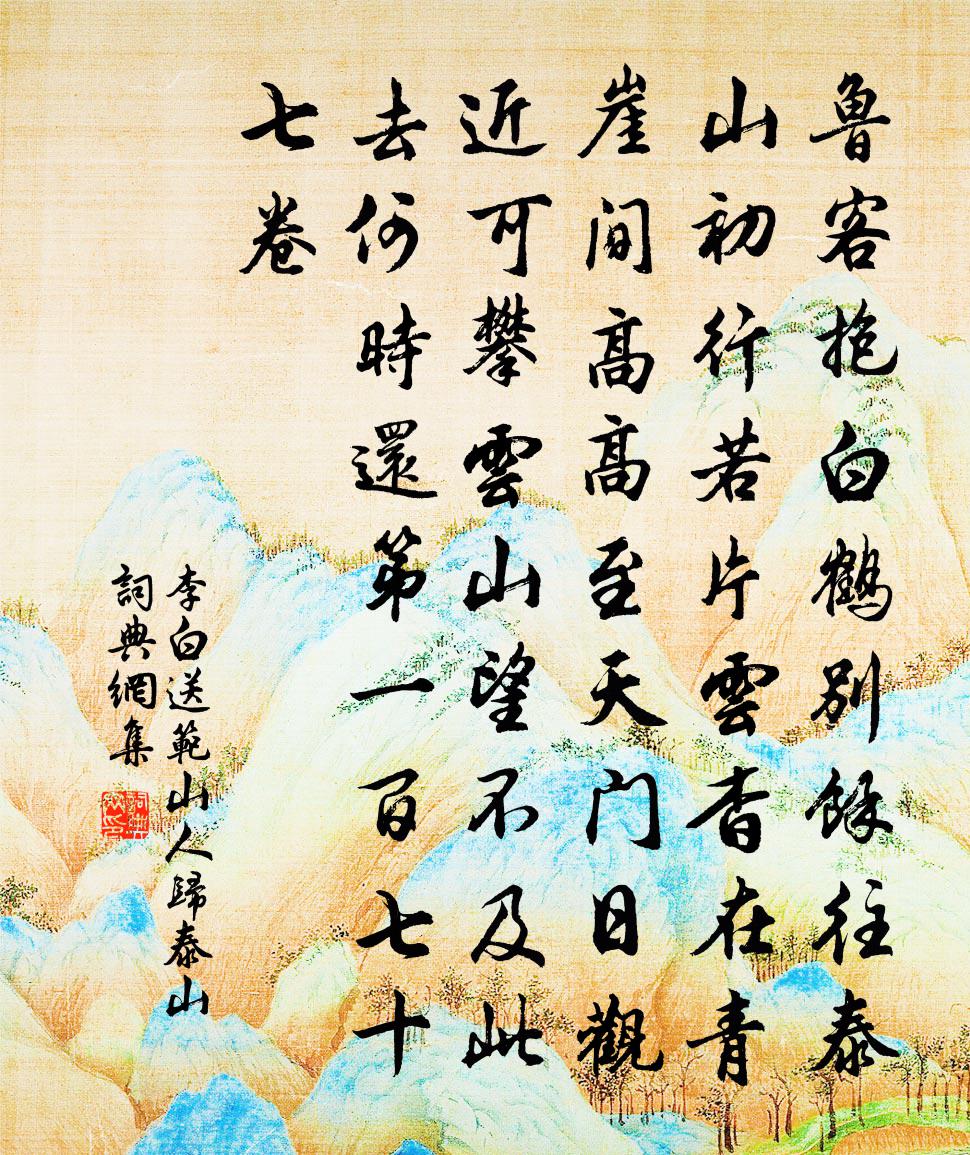 魯客抱白鶴別餘往泰
山初行若片雲杳在青
崖間高高至天門日觀
近可攀雲山望不及此
去何時還第一百七十
七卷
李白送範山人歸泰山
詞典網集